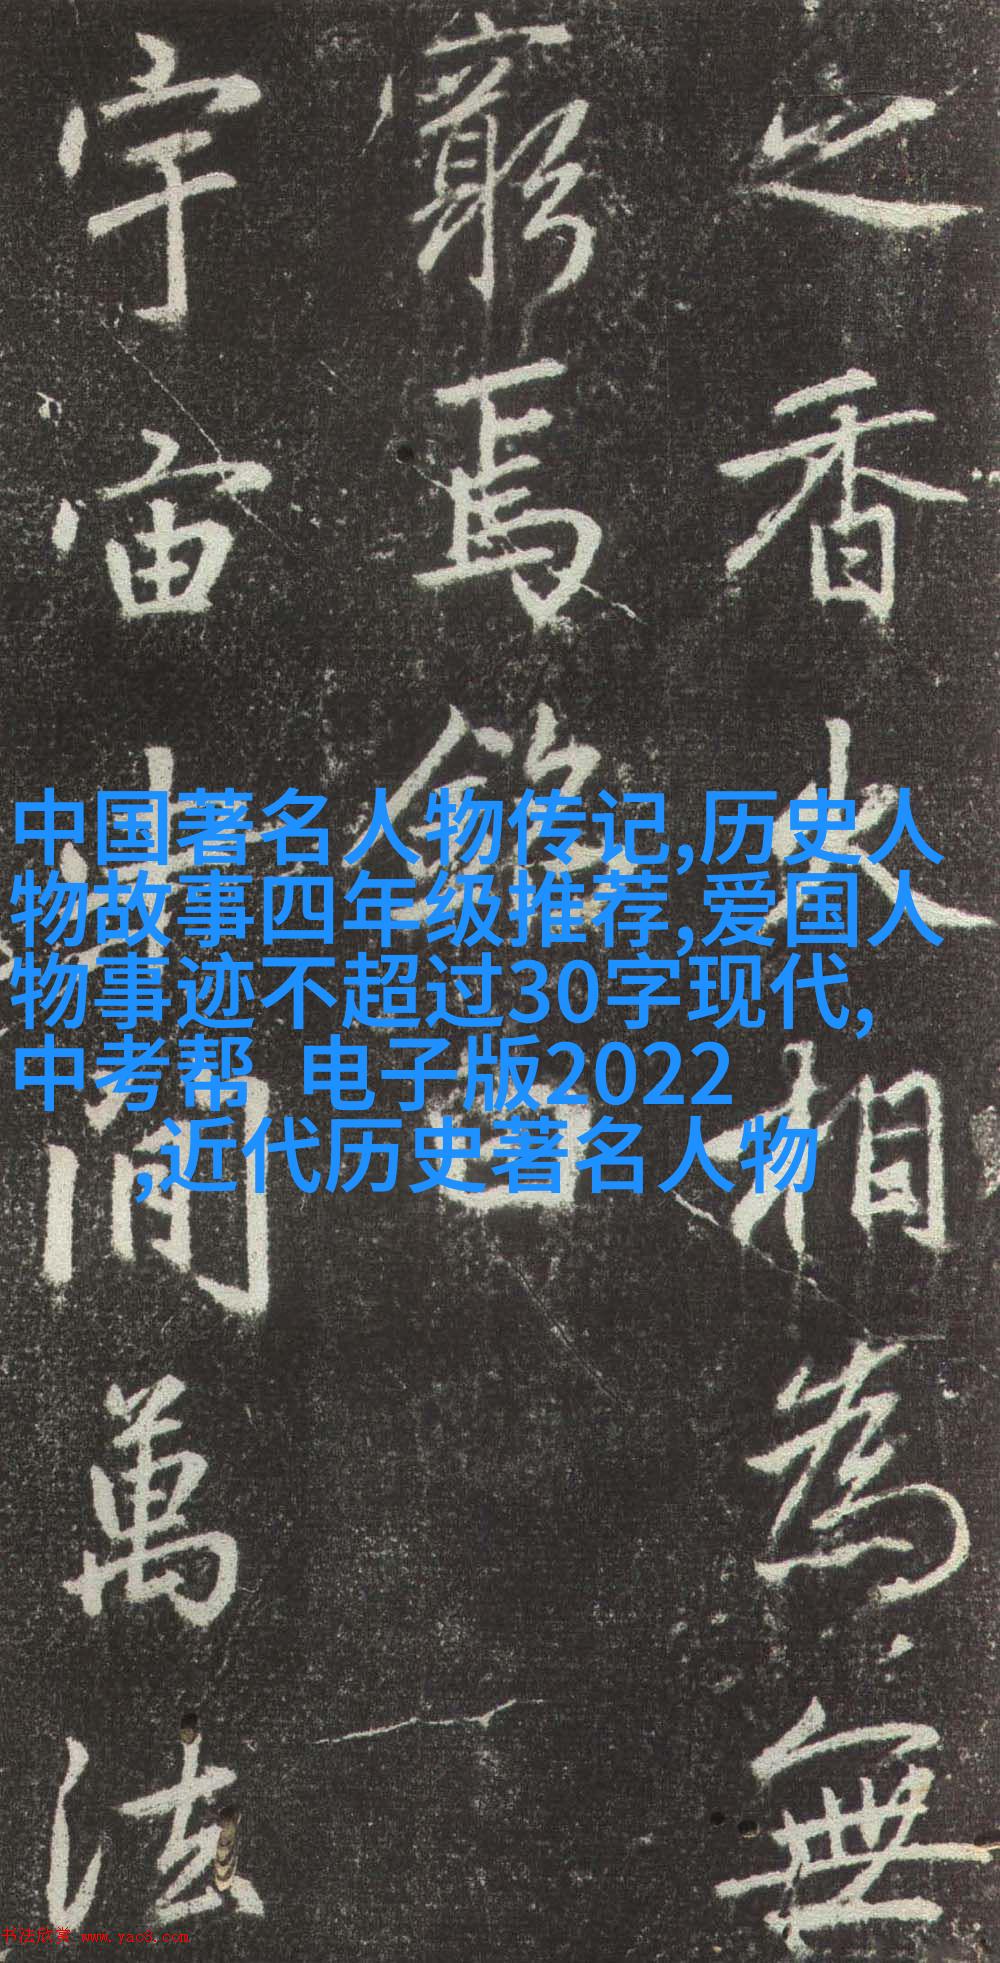 之香火相為無
窮焉銘曰
宇宙之間萬法
中国著名人物传记,历史人
物故事四年级推荐,爱国人
物事迹不超过30字现代,
中考帮 电子版2022
,近代历史著名人物
书法欣赏 www.yac8.com